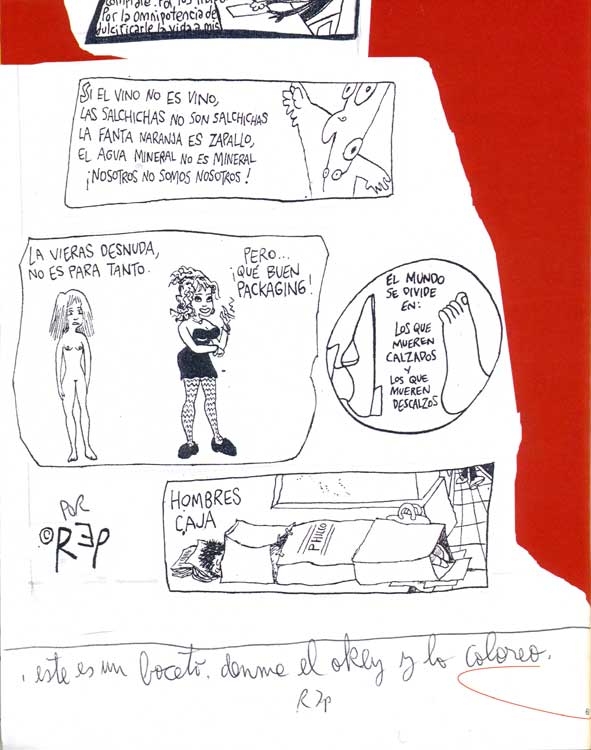 Por la omnipotencia de
dulcificarle la vida a mis
SI EL VINO NO ES VINO,
LAS SALCHICHAS NO SON SALCHICHAS
LA FANTA NARANJA ES ZAPALLO,
EL AGUA MINERAL NO ES MINERAL
¡NOSOTROS NO SOMOS NOSOTROS!
LA VIERAS DESNUDA,
NO ES PARA TANTO.
PERO...
¡QUÉ BUEN
PACKAGING!
EL MUNDO
SE DIVIDE
EN:
LOS QUE
MUEREN
CALZADOS
Y
LOS QUE
MUEREN
DESCALZOS
POR
© REP
HOMBRES
CAJA
PHILCO
este es un boceto. denme el okey y lo coloreo.
REP